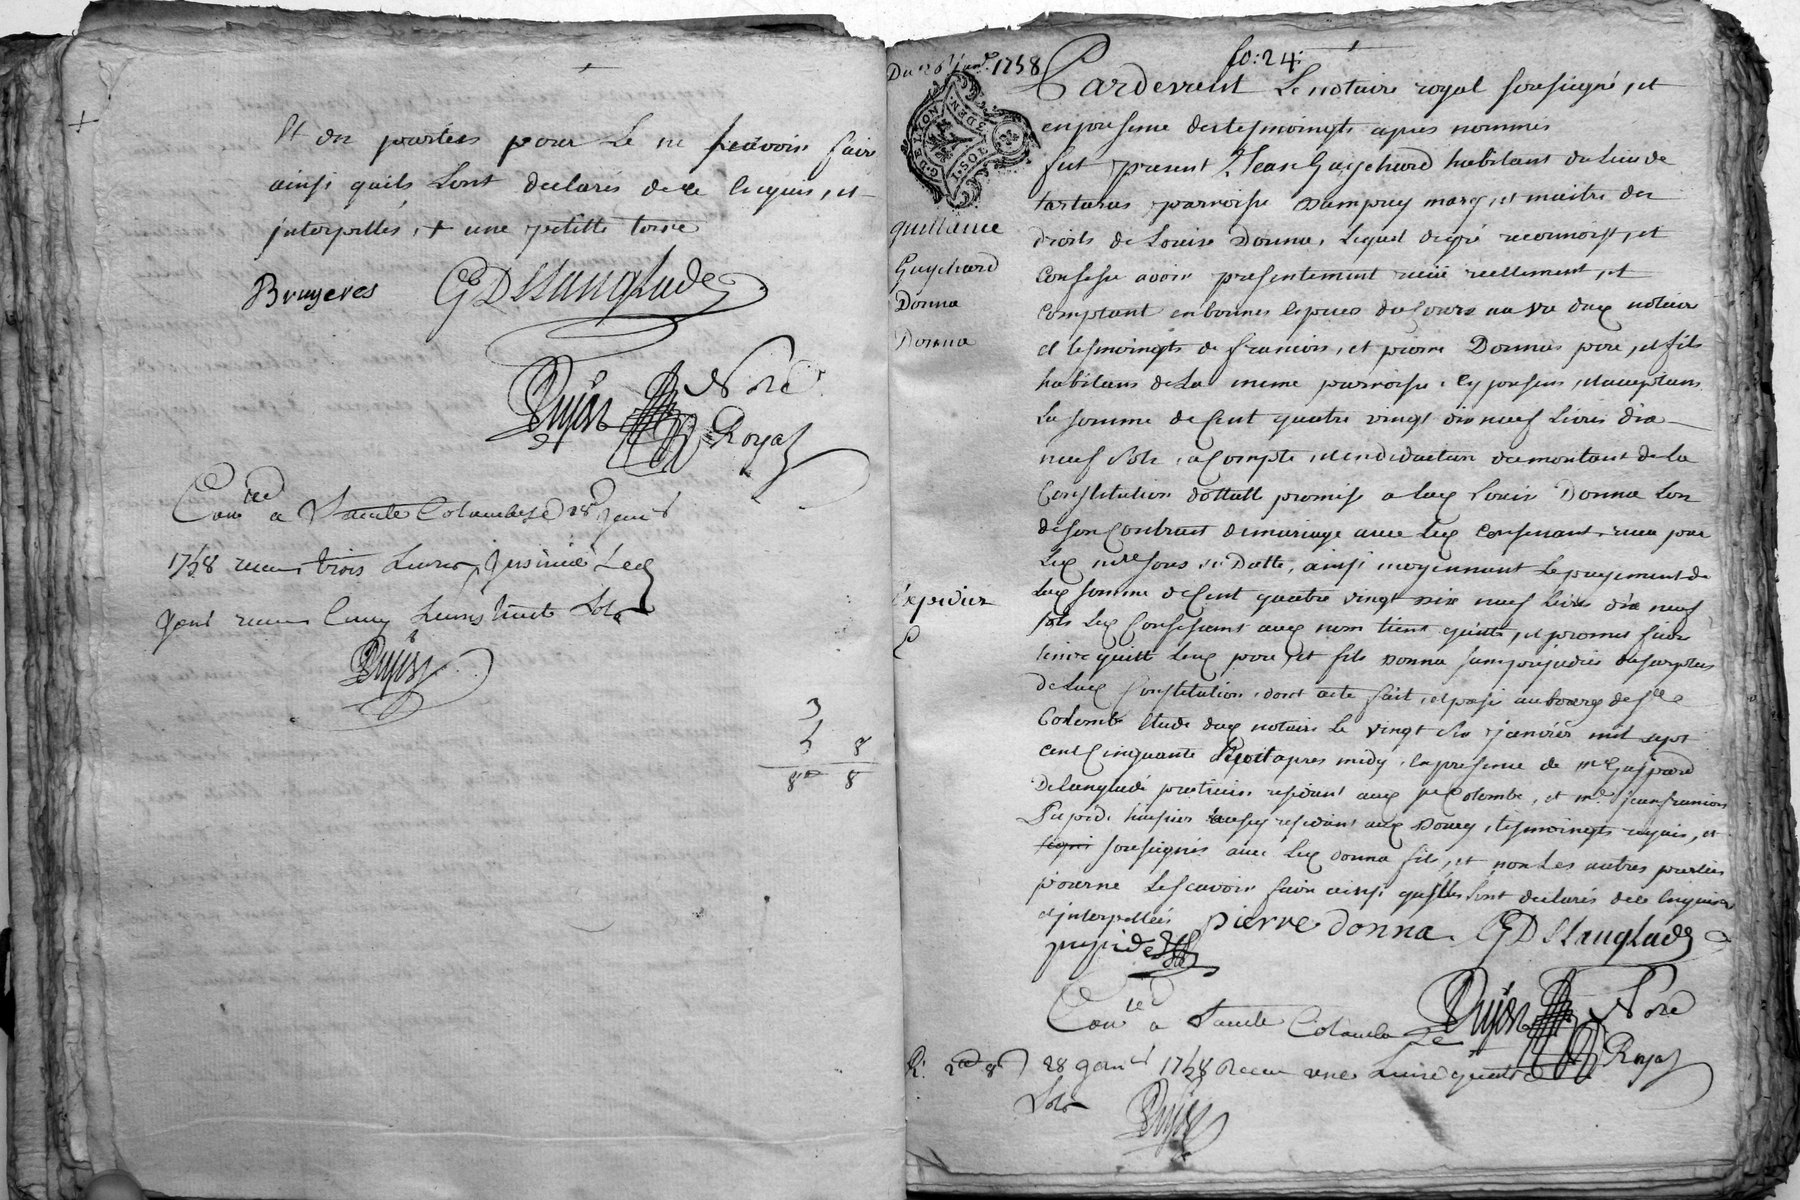 et en parties pour le ne scavoir faire
ainsi quils lont declarés de ce enquis, et
interpellés, + une petitte terre
Bruyeres G D Slanglade
Dujast Nore
Royal
Con.lé a Sainte Colombe le 28 janv.r
1758 receu trois livres,
receu cinq livres huit sols
Dujast
3
5 8
8 8
Du 26 janv. 1758
fo: 24
G. DE LYON
1. SOL 3 DEN
quittance
Guychard
Donna
Donna
Expedier
Pardevent Le notaire royal soresigné, et
en presence des tesmoingts apres nommés
fut present Jean Guychard habitant du lieu de
tartaras parroisse Dampuy mary, et maitre des
droits de Louise Donna, lequel de gré reconnoist, et
confesse avoir presentement receu reellement, et
comptant en bonnes especes du cours au vu dud notaire
et tesmoingts de francois, et pierre Donnas pere, et fils
habitans de la meme parroisse, cy presens, et acceptans
La somme de Cent quatre vingt dix neuf livres dix
neuf sols, a Compte, et en deduction du montant de la
Constitution dottalle promise a lad Louise Donna lors
de son Contrat de mariage avec led confessant, receu par
led n.re sous sa Datte, ainsi moyennant le payement de
lad somme de Cent quatre vingt dix neuf livres dix neuf
sols led Confessant aud nom tient quitte, et promet faire
tenir quitte lesd pere, et fils Donna sans prejudice du surplus
de lad Constitution, dont acte fait, et passé au bourg de S.te
Colombe etude dud notaire le vingt six janvier mil sept
cent Cinquante huit apres midy, en presence de m.e Gaspard
Delanglade praticien residant aud S.te Colombe, et m.e jean francois
Pupide huissier residant aud tesmoingts requis, et
signé soresignés avec led donna fils, et non les autres parties
pour ne le scavoir faire ainsi quelles lont declarés de ce enquises
et interpellées pierre donna G D Slanglade
pupide
Dujast Nore
Royal
Con.lé a Sainte Colombe le
R. 28 janv.r 1758 Receu une livre quatre
sols
Dujast